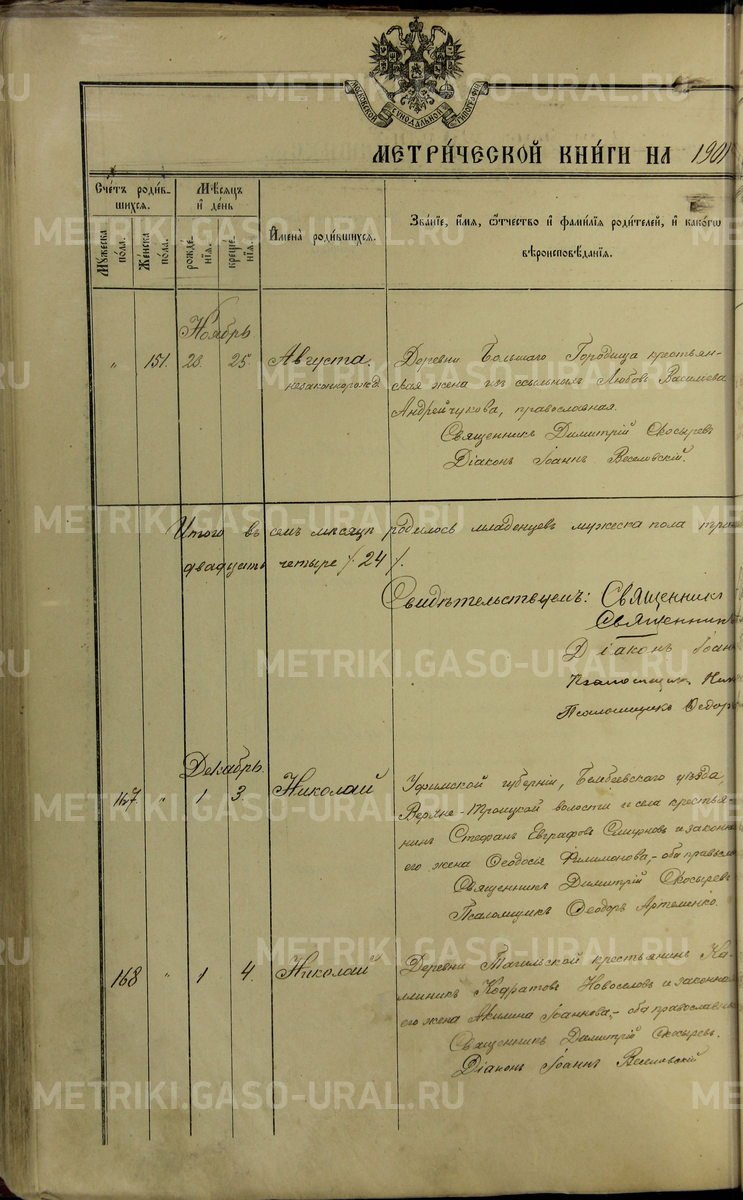 МОСКОВСКОЙ СѴНОДАЛЬНОЙ ТИПОГРАФІИ
МЕТРИ́ЧЕСКОЙ КНИ́ГИ НА 1901
Сче́тъ роди́в-
шихся.
Мѣ́сяцъ
и҆ де́нь
Му́жеска
по́ла.
Же́нска
по́ла.
рожде́-
нїѧ.
креще́-
нїѧ.
И҆мена̀ роди́вшихся.
Зва́нїе, и҆́мя, ѻ҆́тчество и҆ фами́лїя роди́телей, и҆ како́гѡ
вѣроисповѣ́данїѧ.
Ноябрь.
„ 151. 23. 25. Августа.
незаконнорожд.
Деревни Большаго Городища крестьян-
ская жена изъ ссыльныхъ Любовь Василиева
Андрейчукова, православная.
Священникъ Димитрій Скосыревъ
Діаконъ Іоаннъ Веселовскій.
Итого въ семъ мѣсяцѣ родилось младенцевъ мужеска пола
двадцать четыре /24/.
Свидѣтельствуемъ: Священникъ
Священникъ
Діаконъ Іоан
Псаломщикъ
Псаломщикъ Ѳедор
Декабрь.
167 „ 1 3. Николай
Уфимской губерніи, Бембеевского уѣзда,
Верхне-Троицкой волости и села крестья-
нинъ Стефанъ Евграфовъ Смирновъ и законн
его жена Ѳеодосья Филимонова,- оба правосла
Священникъ Димитрій Скосыревъ
Псаломщикъ Ѳеодоръ Артеменко.
168 „ 1 4. Николай
Деревни Тагильской крестьянинъ Ка-
линникъ Кодратовъ Новоселовъ и законна
его жена Акилина Іоаннова,- оба православн
Священникъ Димитрій Скосыревъ.
Діаконъ Іоаннъ Веселовскій
METRIKI.GASO-URAL.RU